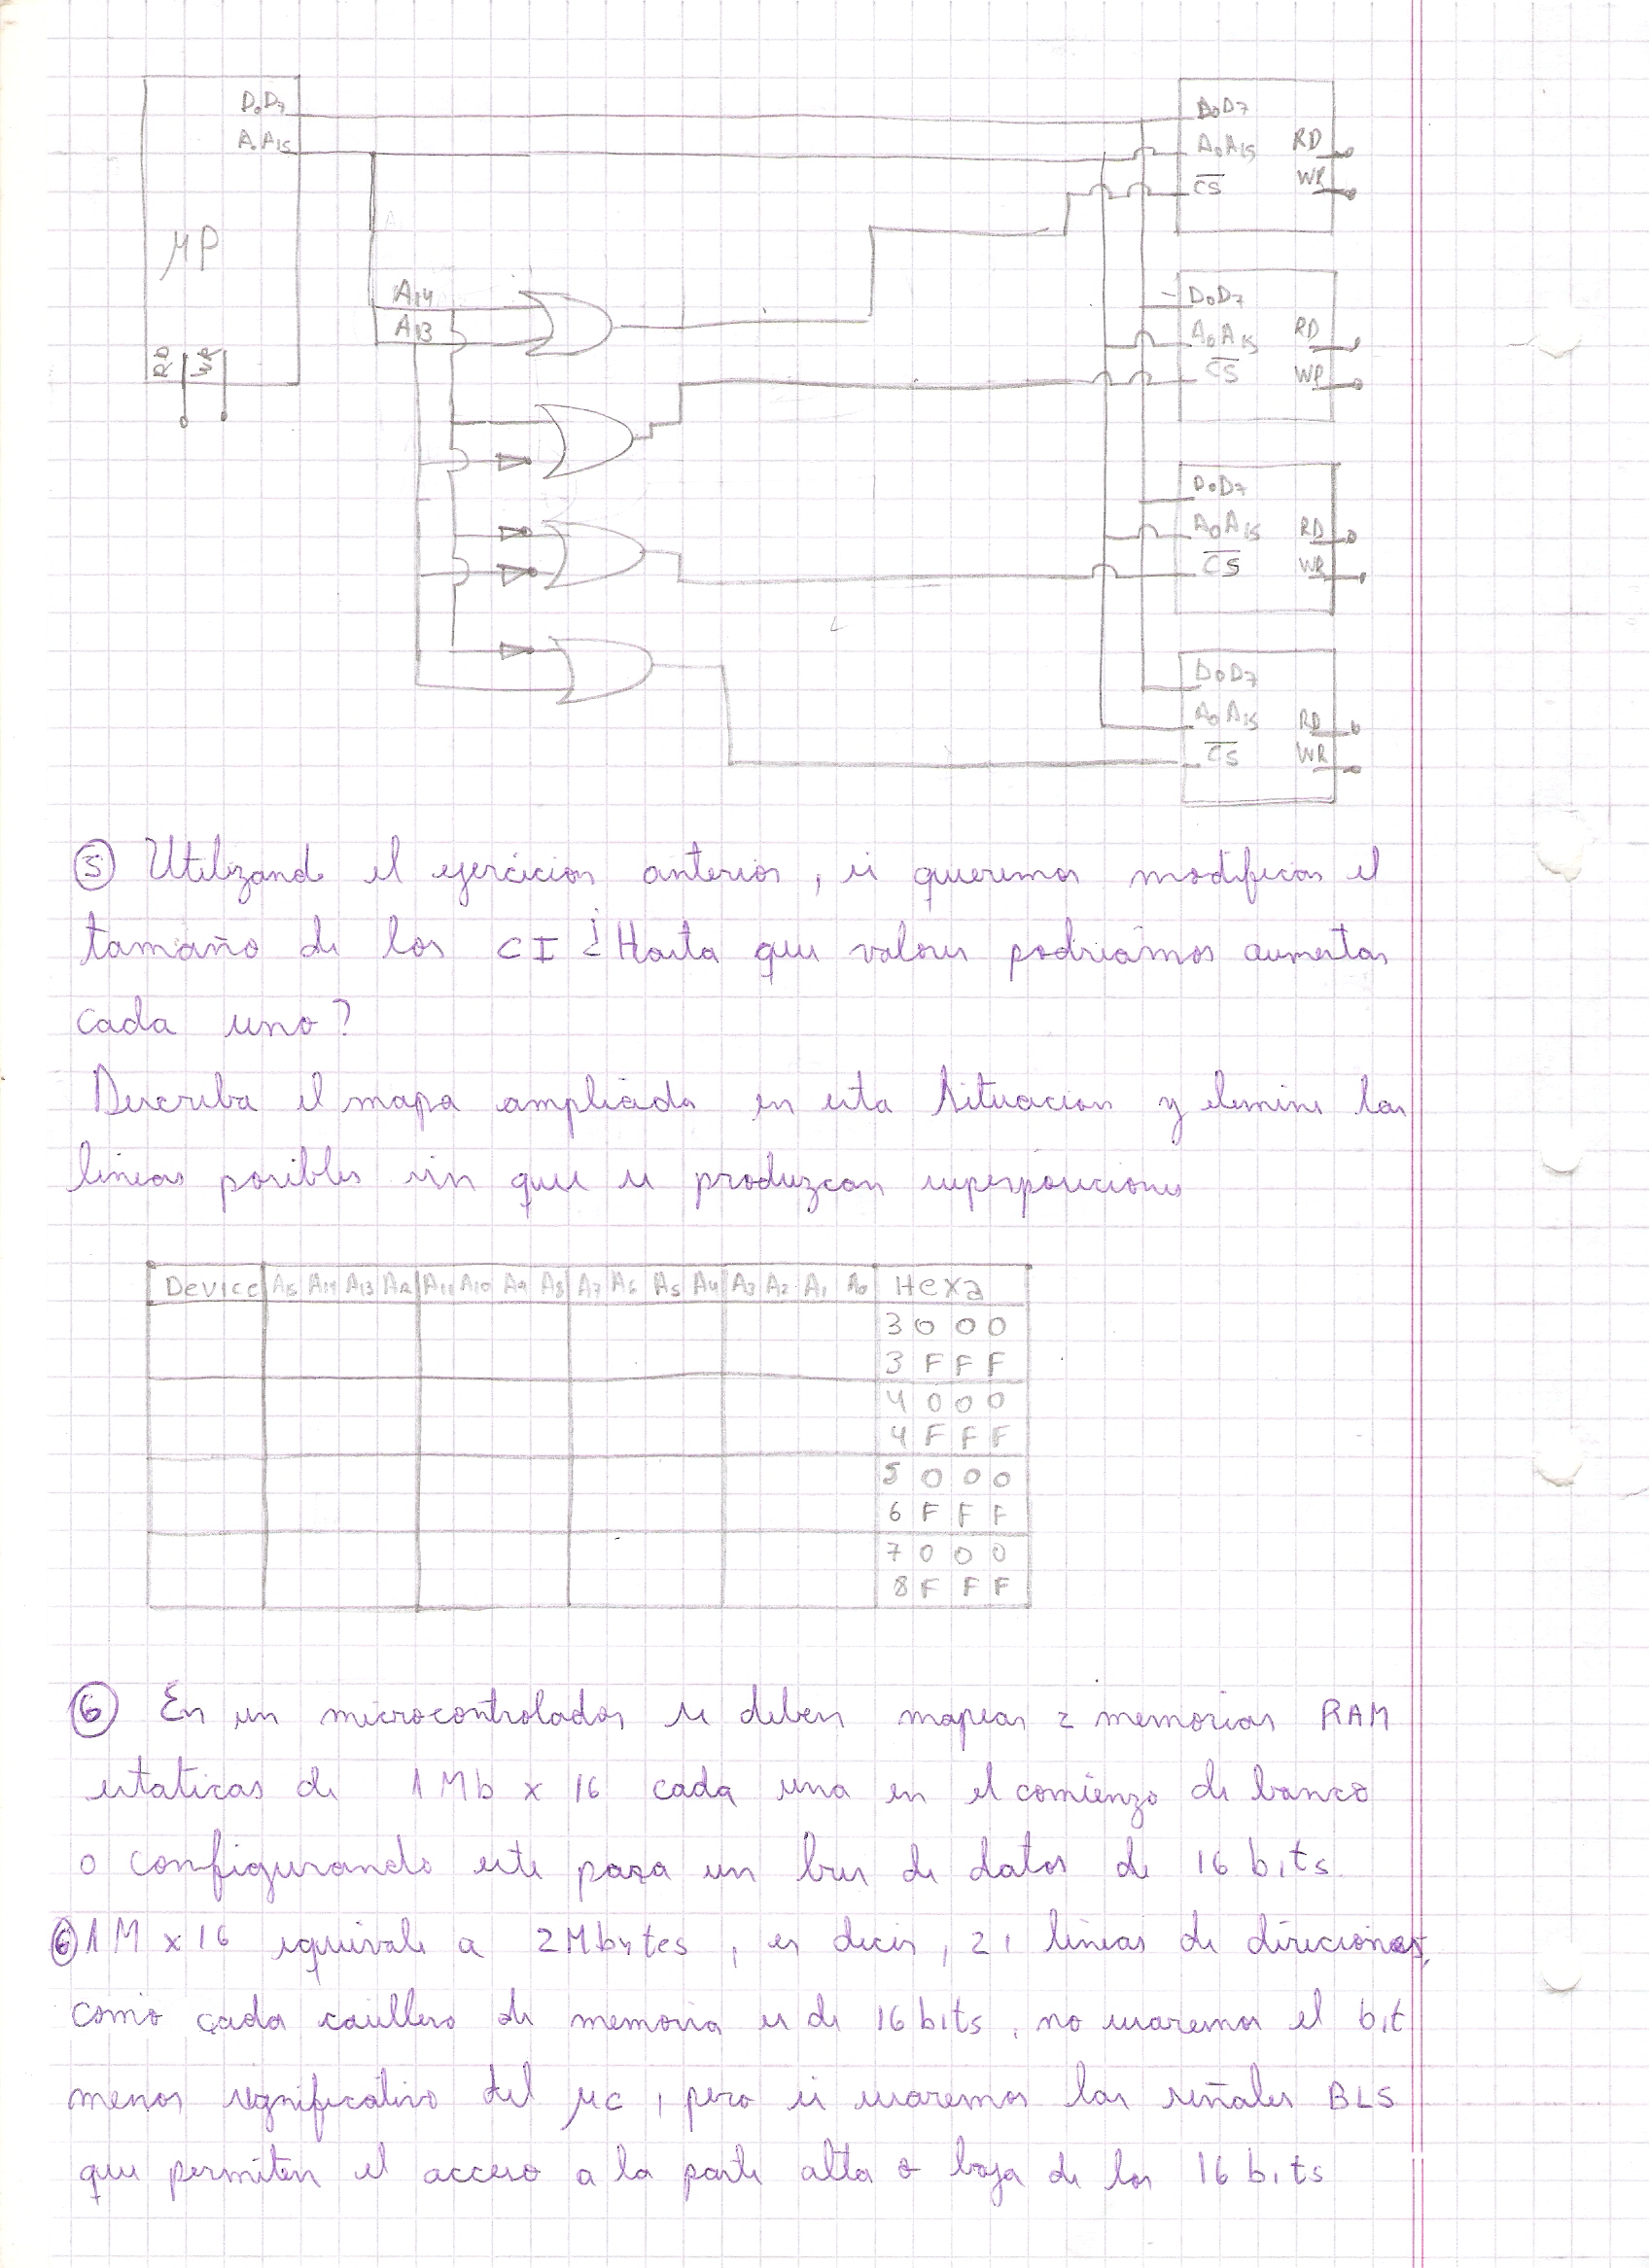 D₀D₇
A₀A₁₅
μP
RD WR
A₁₄
A₁₃
D₀D₇
A₀A₁₅ RD
CS WR
D₀D₇
A₀A₁₅ RD
CS WR
D₀D₇
A₀A₁₅ RD
CS WR
D₀D₇
A₀A₁₅ RD
CS WR
⑤ Utilizando el ejercicion anterior, si queremos modificar el
tamaño de los CI ¿Hasta que valores podriamos aumentar
cada uno?
Describa el mapa ampliada en esta Situacion y elimine las
lineas posibles sin que se produzcan superposiciones
Device A₁₅ A₁₄ A₁₃ A₁₂ A₁₁ A₁₀ A₉ A₈ A₇ A₆ A₅ A₄ A₃ A₂ A₁ A₀ Hexa
3 0 0 0
3 F F F
4 0 0 0
4 F F F
5 0 0 0
6 F F F
7 0 0 0
8 F F F
⑥ En un microcontrolador se deben mapear 2 memorias RAM
estaticas de 1 Mb x 16 cada una en el comienzo de banco
0 configurando este para un bus de datos de 16 bits.
⑥ 1M x 16 equivale a 2Mbytes, es decir, 21 lineas de direcciones,
como cada casillero de memoria es de 16 bits, no usaremos el bit
menos significativo del μC, pero si usaremos las señales BLS
que permiten el acceso a la parte alta o baja de los 16 bits